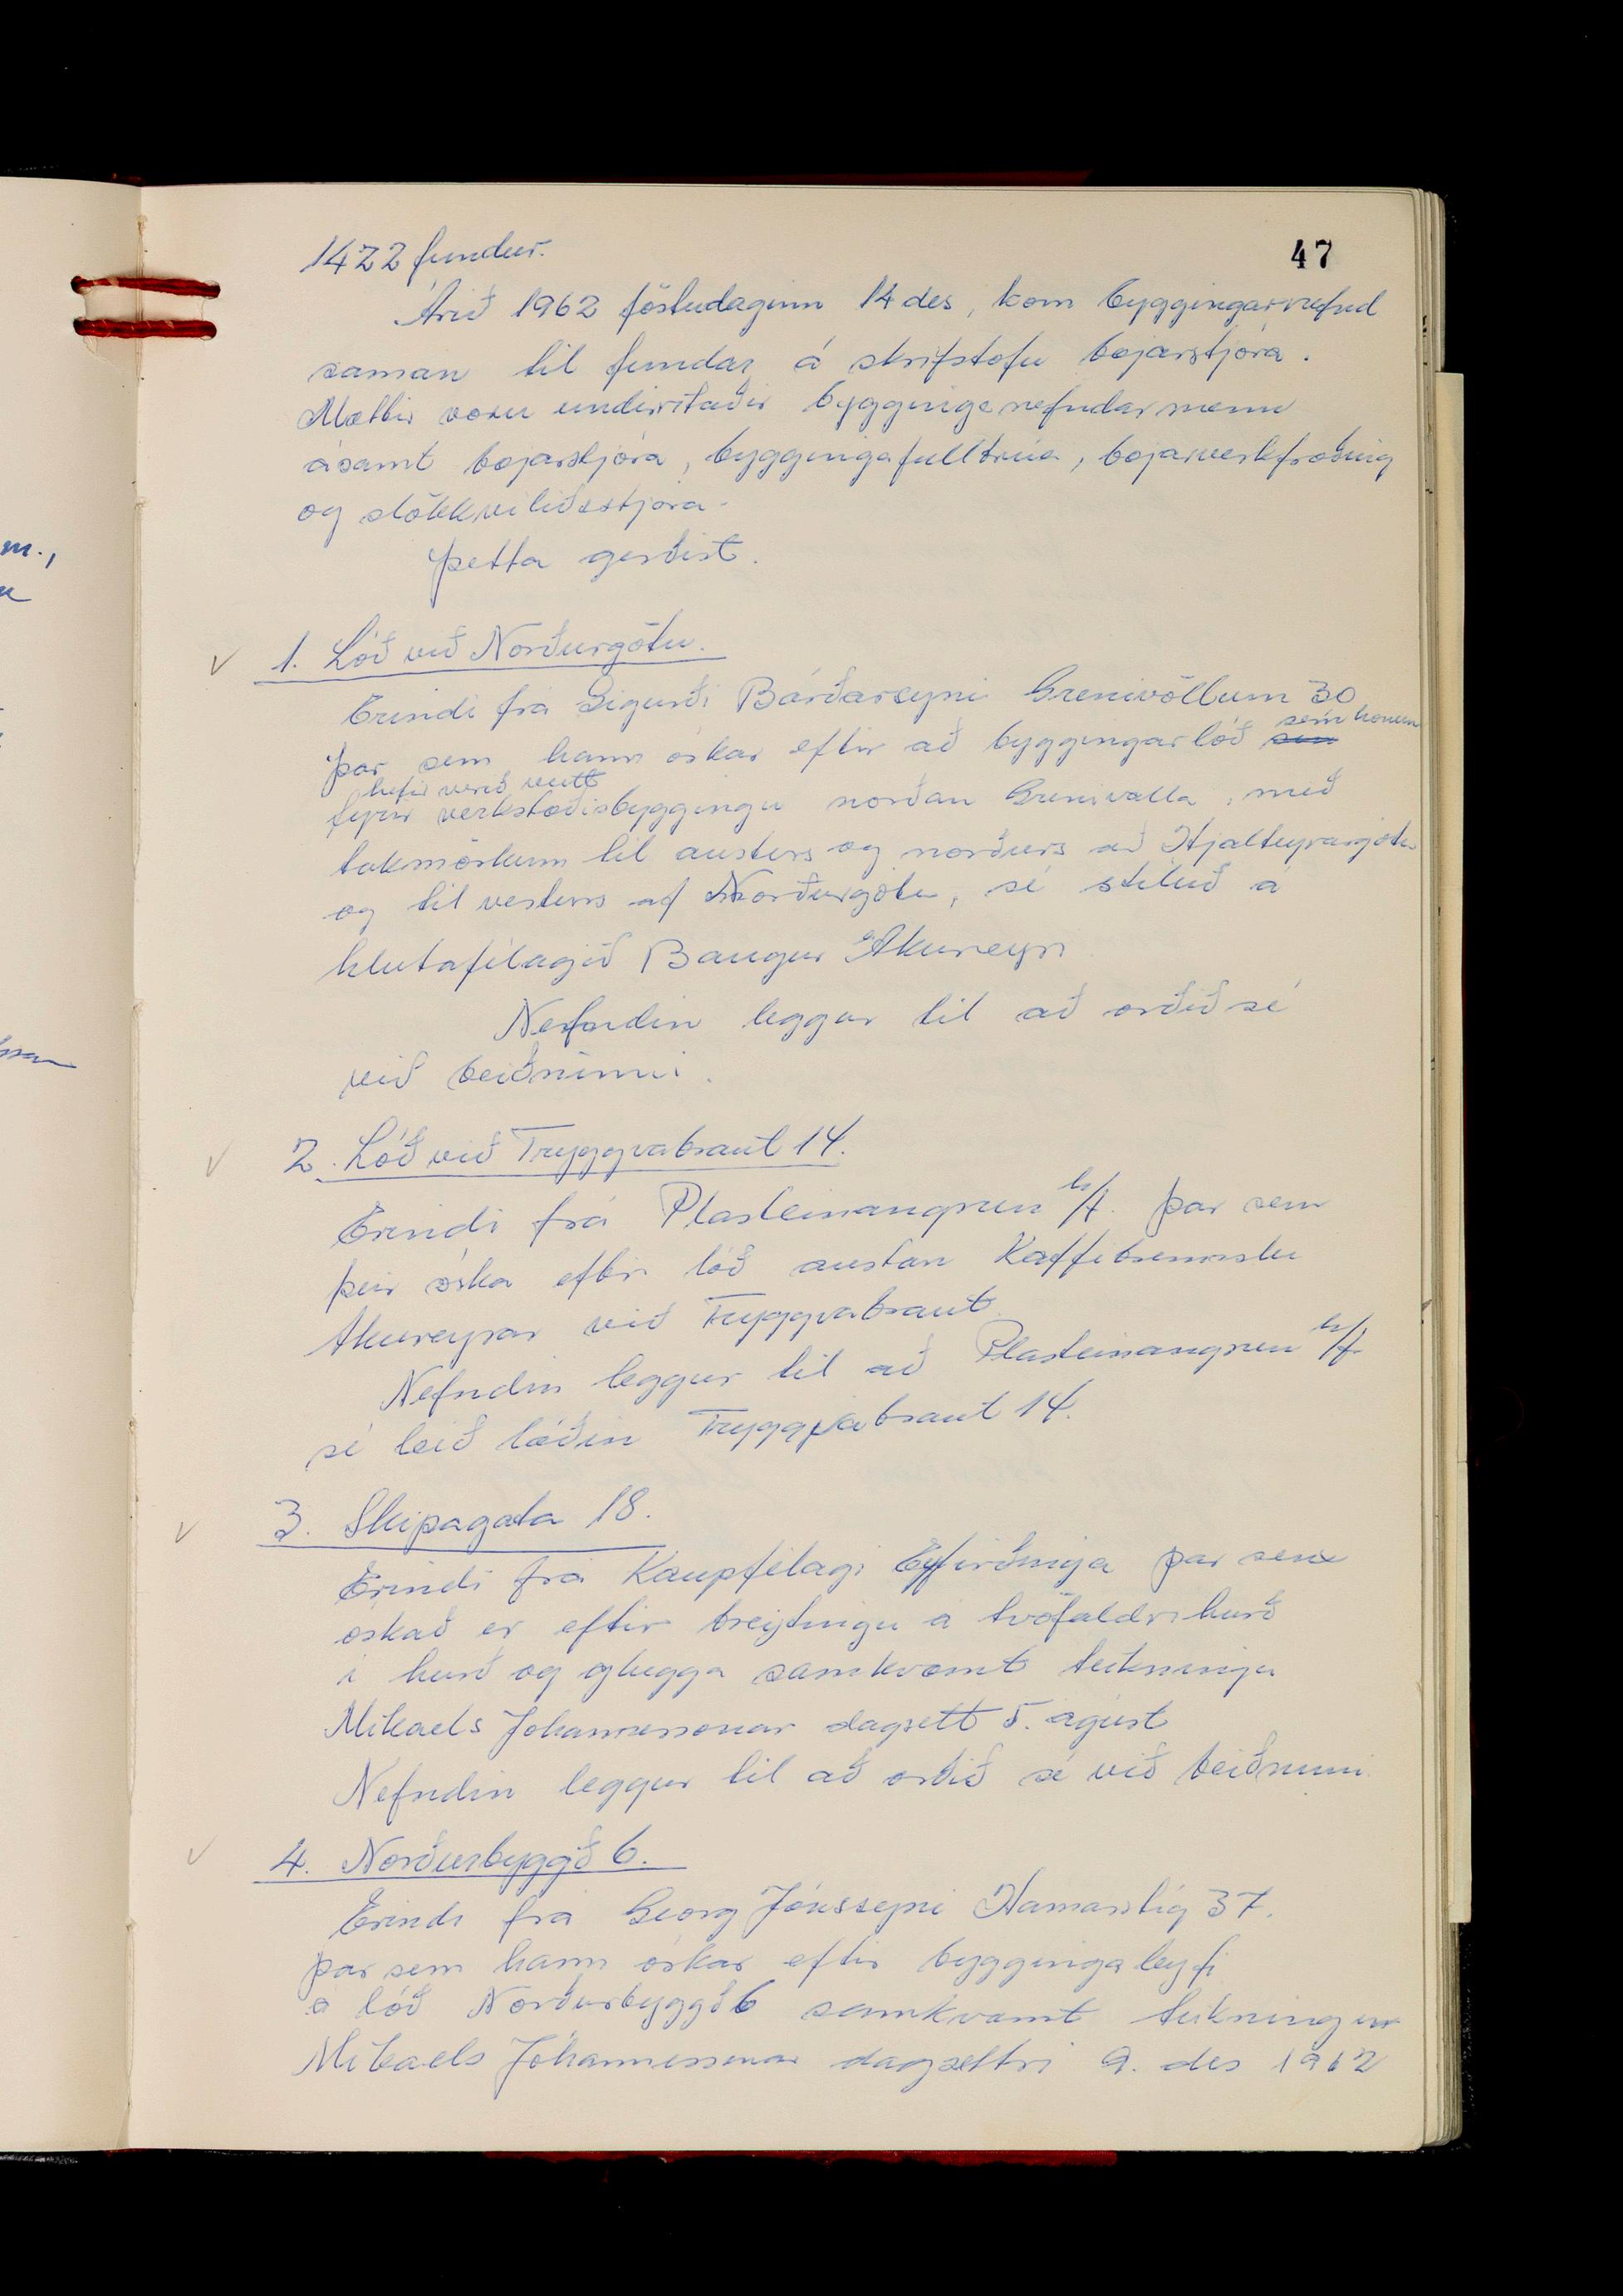 47
1422 fundur.
Árið 1962 föstudaginn 14 des, kom byggingarnefnd
saman til fundar á skrifstofu bæjarstjóra.
Mættir voru undirritaðir bygginganefndarmenn
ásamt bæjarstjóra, byggingafulltrúa, bæjarverkfræðing
og slökkviliðsstjóra.
Þetta gerðist.
1. Lóð við Norðurgötu.
Erindi frá Sigurði Bárðarsyni Grenivöllum 30
þar sem hann óskar eftir að byggingarlóð sem honum
hefir verið veitt
fyrir verkstæðisbyggingu norðan Grenivalla, með
takmörkum til austurs og norðurs að Hjalteyrargötu
og til vesturs af Norðurgötu, sé stíluð á
hlutafélagið Baugur Akureyri
Nefndin leggur til að orðið sé
við beiðninni.
2. Lóð við Tryggvabraut 14.
Erindi frá Plasteinangrun h/f. þar sem
þeir óska eftir lóð austan Kaffibrennslu
Akureyrar við Tryggvabraut.
Nefndin leggur til að Plasteinangrun h/f
sé leið lóðin Tryggvabraut 14.
3. Skipagata 18.
Erindi frá Kaupfélagi Eyfirðinga þar sem
óskað er eftir breytingu á tvöfaldri hurð
í hurð og glugga samkvæmt teikningu
Mikaels Jóhannessonar dagsett 5. ágúst
Nefndin leggur til að orðið sé við beiðninni
4. Norðurbyggð 6.
Erindi frá Georg Jónssyni Hamarstíg 37.
þar sem hann óskar eftir byggingaleyfi
á lóð Norðurbyggð 6 samkvæmt teikningum
Mikaels Jóhannessonar dagsettri 9. des 1962
m.,